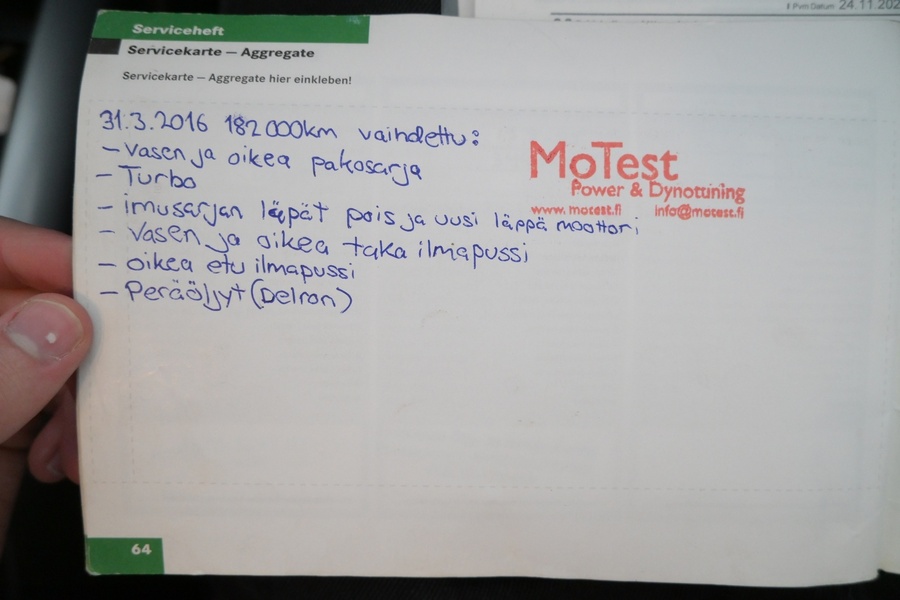 Pvm Datum 24.11.202
Serviceheft
Servicekarte – Aggregate
Servicekarte – Aggregate hier einkleben!
31.3.2016 182000km vaihdettu:
- Vasen ja oikea pakosarja
- Turbo
- imusarjan läpät pois ja uusi läppä moottori
- Vasen ja oikea taka ilmapussi
- oikea etu ilmapussi
- Peräöljyt (Delron)
MoTest
Power & Dynotuning
www.motest.fi info@motest.fi
64